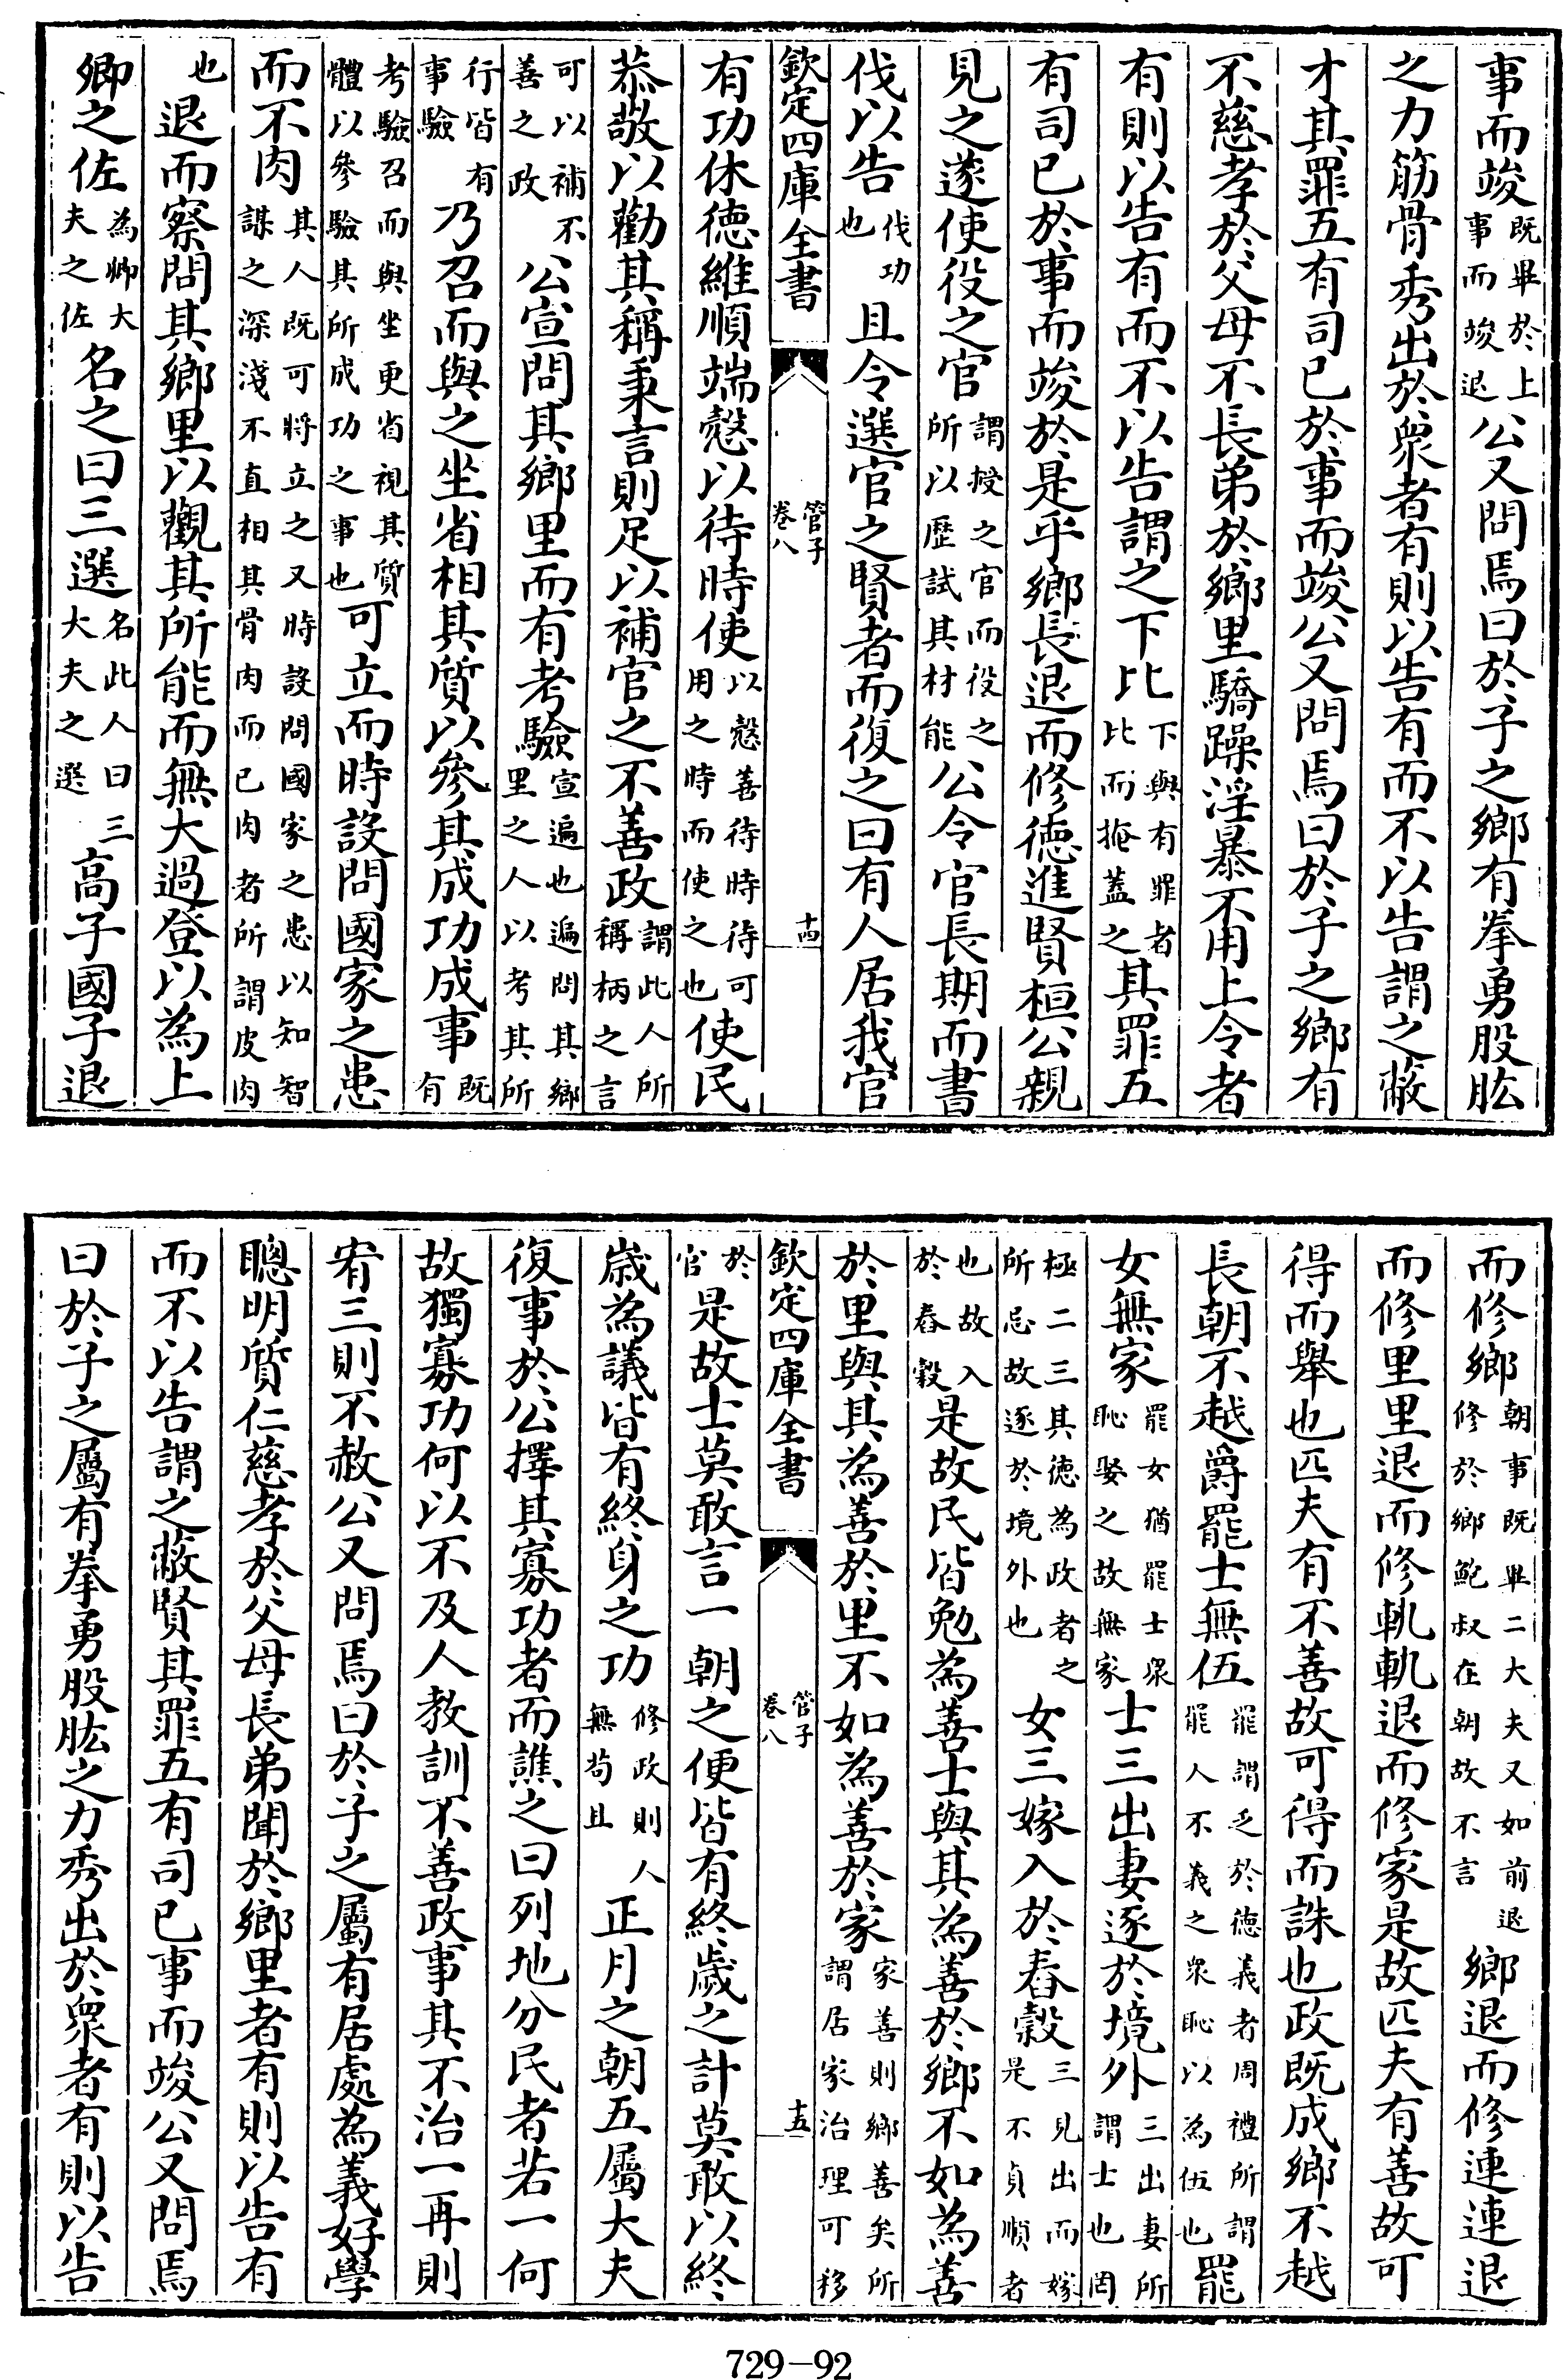 事而竣既畢於上事而竣退公又問焉曰於子之鄉有拳勇股肱
之力筋骨秀出於衆者有則以告有而不以告謂之蔽
才其罪五有司已於事而竣公又問焉曰於子之鄉有
不慈孝於父母不長弟於鄉里驕躁淫暴不用上令者
有則以告有而不以告謂之下比下與有罪者比而掩蓋之其罪五
有司已於事而竣於是乎鄉長退而修徳進賢桓公親
見之遂使役之官謂授之官而役之所以歷試其材能公令官長期而書
伐以告伐功也且令選官之賢者而復之曰有人居我官
欽定四庫全書 管子卷八 十四
有功休徳維順端慤以待時使以慤善待時待可用之時而使之也使民
恭敬以勸其稱秉言則足以補官之不善政謂此人所稱柄之言
可以補不善之政公宣問其鄉里而有考驗宣遍也遍問其鄉里之人以考其所
行皆有事驗乃召而與之坐省相其質以參其成功成事既有
考驗召而與坐更省視其質體以參驗其所成功之事也可立而時設問國家之患
而不肉其人既可將立之又時設問國家之患以知智謀之深淺不直相其骨肉而已肉者所謂皮肉
也退而察問其鄉里以觀其所能而無大過登以為上
卿之佐為卿大夫之佐名之曰三選名此人曰三大夫之選高子國子退
而修鄉朝事既畢二大夫又如前退修於鄉鮑叔在朝故不言鄉退而修連連退
而修里里退而修軌軌退而修家是故匹夫有善故可
得而舉也匹夫有不善故可得而誅也政既成鄉不越
長朝不越爵罷士無伍罷謂乏於徳義者周禮所謂罷人不義之衆恥以為伍也罷
女無家罷女猶罷士衆恥娶之故無家士三出妻逐於境外三出妻所謂士也罔
極二三其徳為政者之所忌故逐於境外也女三嫁入於舂榖三見出而嫁是不貞順者
也故入於舂榖是故民皆勉為善士與其為善於鄉不如為善
於里與其為善於里不如為善於家家善則鄉善矣所謂居家治理可移
欽定四庫全書 管子卷八 十五
於官是故士莫敢言一朝之便皆有終歲之計莫敢以終
歲為議皆有終身之功修政則人無苟且正月之朝五屬大夫
復事於公擇其寡功者而譙之曰列地分民者若一何
故獨寡功何以不及人教訓不善政事其不治一再則
宥三則不赦公又問焉曰於子之屬有居處為義好學
聰明質仁慈孝於父母長弟聞於鄉里者有則以告有
而不以告謂之蔽賢其罪五有司已事而竣公又問焉
曰於子之屬有拳勇股肱之力秀出於衆者有則以告
729-92